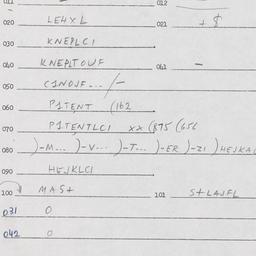 011 012
020 LEHXL 021 + $
030 KNEPLCI
040 KNEPLTOWF 041 –
050 CINOUF... /-
060 PITENT (162
070 PITENTLCI xx (875 (656
080 )-M... )-V... )-T... )-ER )-ZI )HEJKA
090 HEJKLCI
100 MAS+ 101 S+LAJFL
031 0
042 0